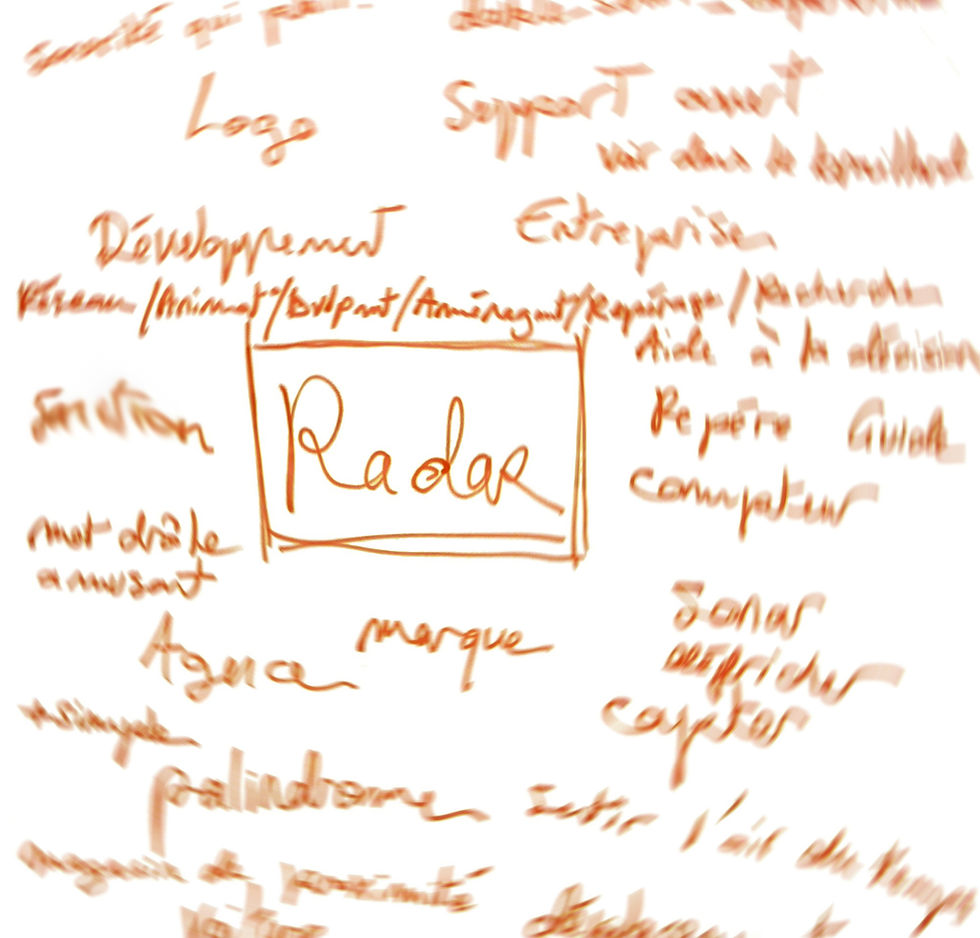 qui
Logo
Support ouvert
voir dans le brouillard
Développement
Entreprise
Réseau/Animat°/Dvlpmt/Aménagmt/Repérage/Recherche
Aide à la décision
Repère Guide
Radar
compteur
mot drôle
amusant
Sonar
Agence
marque
défricher
capter
simple
palindrome
Sentir l'air du temps
magasin de proximité